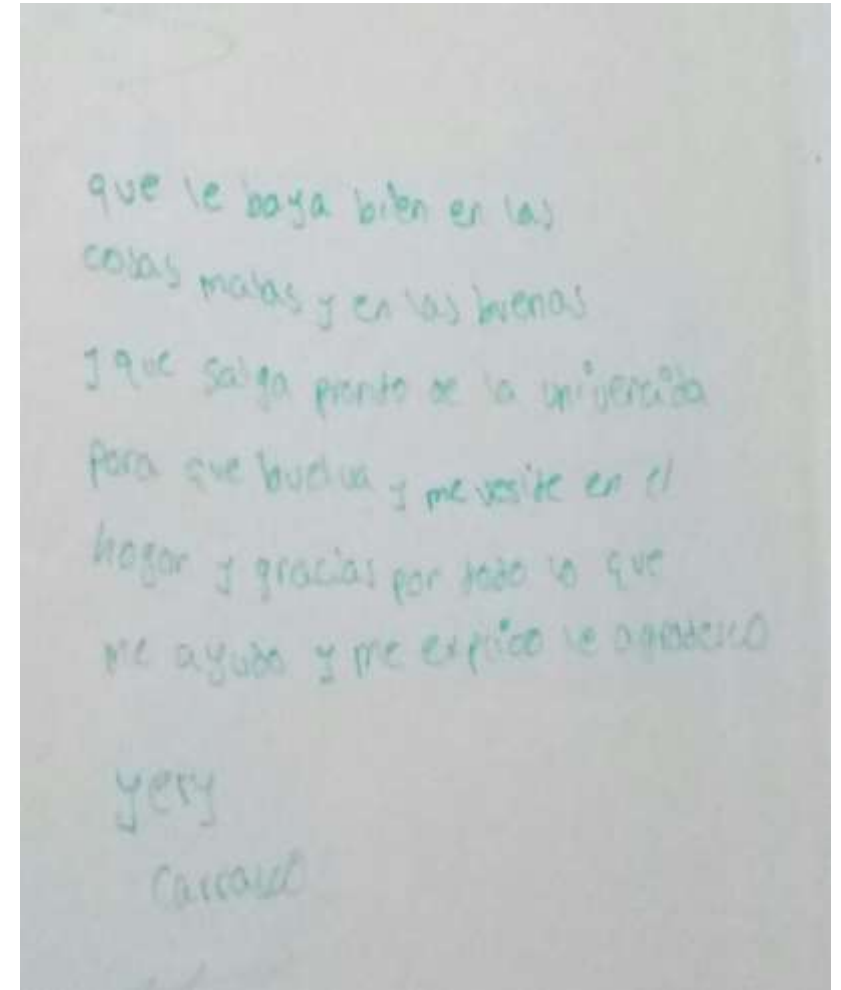 que le baya bien en las
cosas malas y en las buenas
y que salga pronto de la univercida
para que buelva y me vesite en el
hogar y gracias por todo lo que
me ayudo y me explico le agradesco
yery
Carrasco